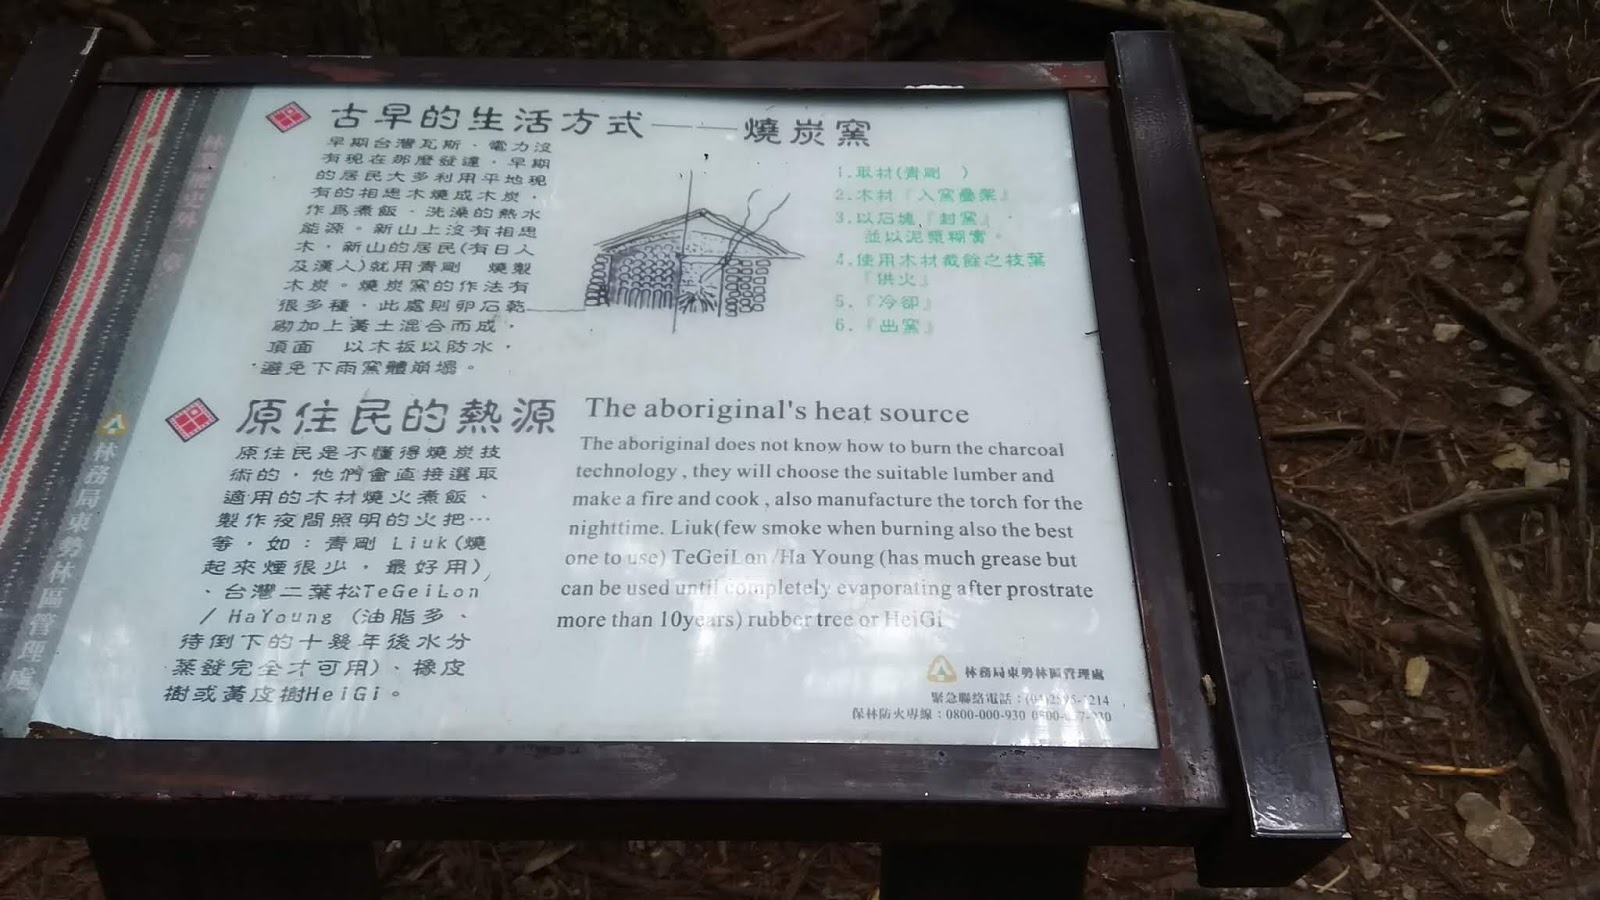 古早的生活方式——燒炭窯
早期台灣瓦斯、電力沒
有現在那麼發達，早期
的居民大多利用平地現
有的相思木燒成木炭，
作為煮飯、洗澡的熱水
能源。新山上沒有相思
木，新山的居民(有日人
及漢人)就用青剛 燒製
木炭。燒炭窯的作法有
很多種，此處則卵石乾
砌加上黃土混合而成，
頂面 以木板以防水，
避免下雨窯體崩塌。
1.取材(青剛 )
2.木材『入窯疊架』
3.以石塊『封窯』，
並以泥漿糊實。
4.使用木材截餘之枝葉
『供火』
5.『冷卻』
6.『出窯』
原住民的熱源
原住民是不懂得燒炭技
術的，他們會直接選取
適用的木材燒火煮飯、
製作夜間照明的火把…
等，如：青剛 Liuk(燒
起來煙很少，最好用)
、台灣二葉松TeGeiLon
/ HaYoung (油脂多、
待倒下的十幾年後水分
蒸發完全才可用)、橡皮
樹或黃皮樹HeiGi。
The aboriginal's heat source
The aboriginal does not know how to burn the charcoal
technology , they will choose the suitable lumber and
make a fire and cook , also manufacture the torch for the
nighttime. Liuk(few smoke when burning also the best
one to use) TeGeiLon /Ha Young (has much grease but
can be used until completely evaporating after prostrate
more than 10years) rubber tree or HeiGi
林務局東勢林區管理處
緊急聯絡電話：
保林防火專線：0800-000-930
林務局東勢林區管理處